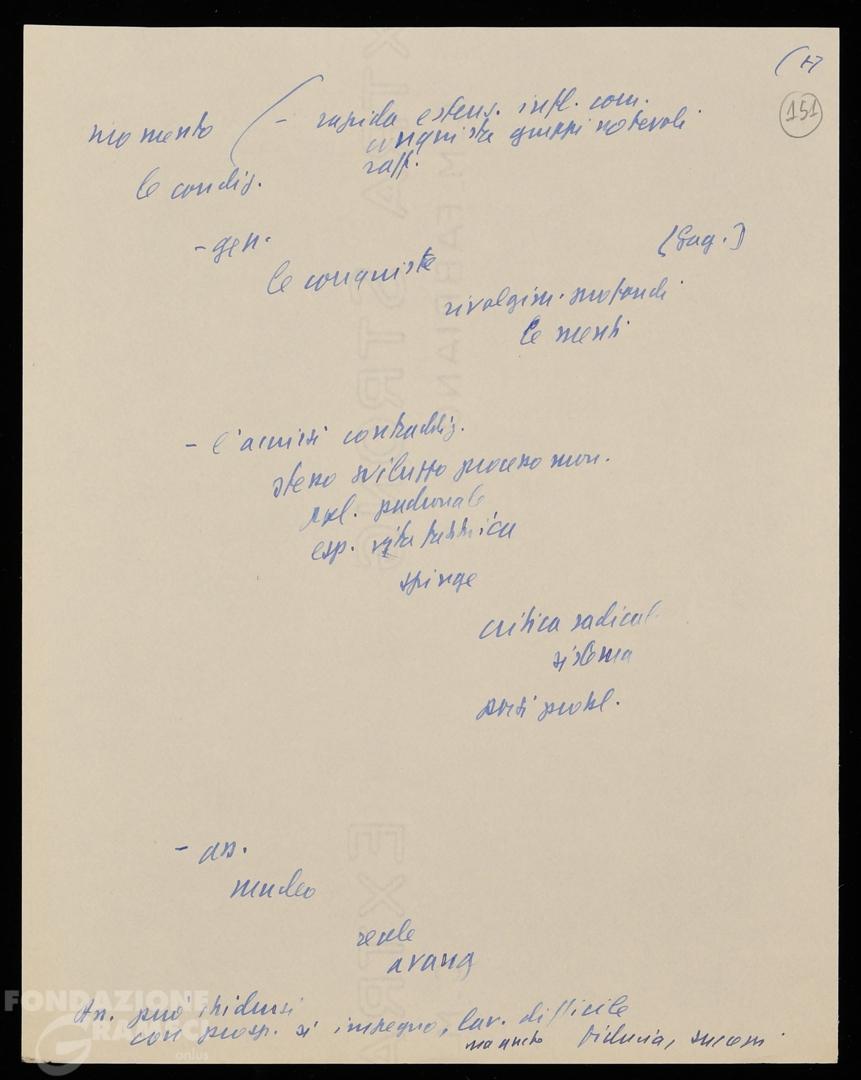 (17
151
momento ( - rapida estens. infl. com.
conquista gruppi notevoli
raff.
le condiz.
- gen.
[Gug.]
le conquiste
rivolgim. profondi
le menti
- l'acuirsi contraddiz.
stesso sviluppo processo mon.
padronale
esp. vita fabbrica
spinge
critica radical
sistema
porsi probl.
- as.
nucleo
reale
avang
An. può chiudersi
con prosp. si impegno, lav. difficile
ma anche fiducia, successi.
EXTRA STRONG
M. FABRIANO
EXTRA
FONDAZIONE
GRAMSCI
onlus